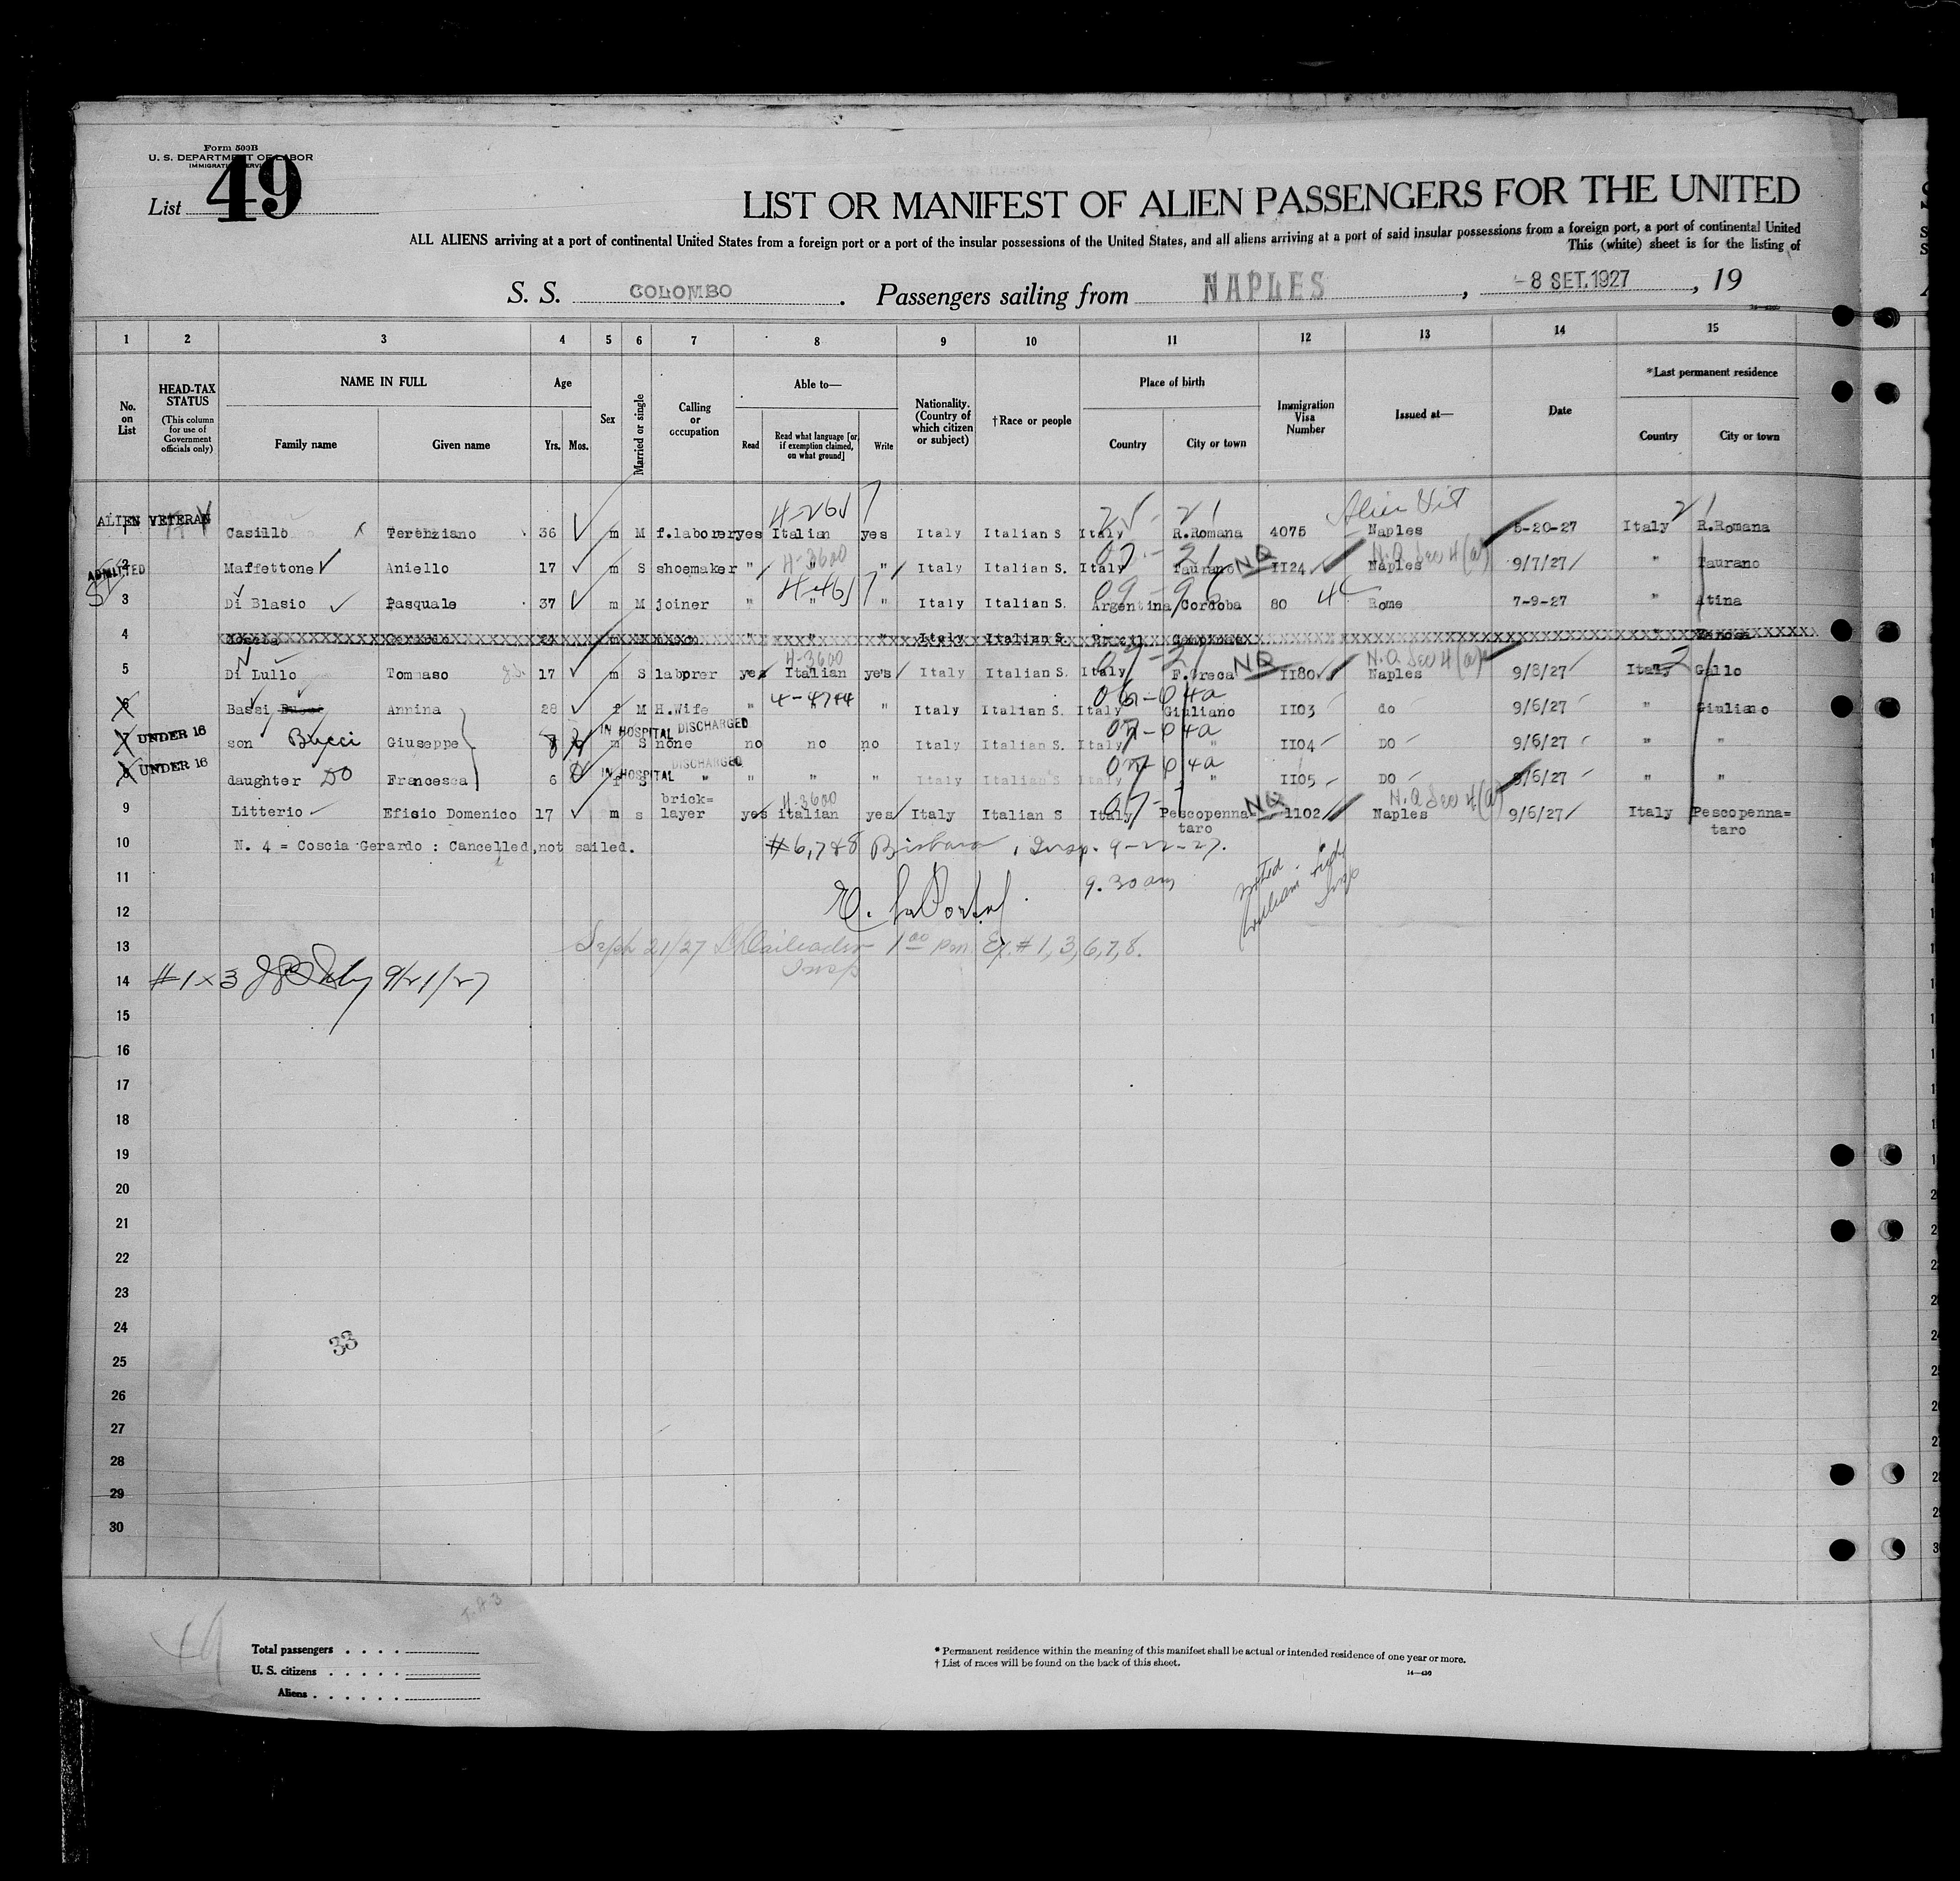 Form 500B
U. S. DEPARTMENT OF LABOR
IMMIGRATION SERVICE
List 49
LIST OR MANIFEST OF ALIEN PASSENGERS FOR THE UNITED
ALL ALIENS arriving at a port of continental United States from a foreign port or a port of the insular possessions of the United States, and all aliens arriving at a port of said insular possessions from a foreign port, a port of continental United
This (white) sheet is for the listing of
S. S. COLOMBO . Passengers sailing from NAPLES , -8 SET. 1927 , 19
1 2 3 4 5 6 7 8 9 10 11 12 13 14 15
No. on List
HEAD-TAX STATUS
(This column for use of Government officials only)
NAME IN FULL
Family name Given name
Age
Yrs. Mos.
Sex
Married or single
Calling or occupation
Able to—
Read Read what language [or, if exemption claimed, on what ground] Write
Nationality. (Country of which citizen or subject)
†Race or people
Place of birth
Country City or town
Immigration Visa Number
Issued at—
Date
*Last permanent residence
Country City or town
4-265 Alien Vet
ALIEN VETERAN
1 Casillo Terenziano 36 m M f.laborer yes Italian yes Italy Italian S Italy R.Romana 4075 Naples 5-20-27 Italy R.Romana
ADMITTED 4-3600 NQ N.Q Sec 4(a)
2 Maffettone Aniello 17 m S shoemaker " " " Italy Italian S. Italy Taurano 1124 Naples 9/7/27 " Taurano
3 Di Blasio Pasquale 37 m M joiner " " " Italy Italian S. Argentina Cordoba 80 Rome 7-9-27 " Atina
4 Coscia Gerardo m " " " Italy Italian S. Brazil " Venosa
4-3600 NQ N.Q Sec 4(a)
5 Di Lullo Tommaso 17 m S laborer yes Italian yes Italy Italian S. Italy F.Greca 1180 Naples 9/8/27 Italy Gallo
4-4744 06-04a
6 Bassi Bucci Annina 28 f M H.Wife " " Italy Italian S. Italy Giuliano 1103 do 9/6/27 " Giuliano
IN HOSPITAL DISCHARGED
7 UNDER 16 son Bucci Giuseppe 8 m S none no no no Italy Italian S. Italy " 1104 DO 9/6/27 " "
IN HOSPITAL DISCHARGED
8 UNDER 16 daughter DO Francesca 6 f S " " " " Italy Italian S Italy " 1105 DO 9/6/27 " "
4-3600 NQ N.Q Sec 4(a)
9 Litterio Efisio Domenico 17 m s brick= layer yes italian yes Italy Italian S Italy Pescopenna- taro 1102 Naples 9/6/27 Italy Pescopenna= taro
10 N. 4 = Coscia Gerardo : Cancelled,not sailed. #6,7&8 , Insp. 9-22-27.
11 9.30 am
12
13 Sept 21/27 1 00 pm. Ex. # 1, 3, 6, 7, 8.
Insp
14 #1 x 3 9/21/27
15
16
17
18
19
20
21
22
23
24
33
25
26
27
28
29
30
49
Total passengers . . . .
U. S. citizens . . . . .
Aliens . . . . . .
* Permanent residence within the meaning of this manifest shall be actual or intended residence of one year or more.
† List of races will be found on the back of this sheet.
14—430